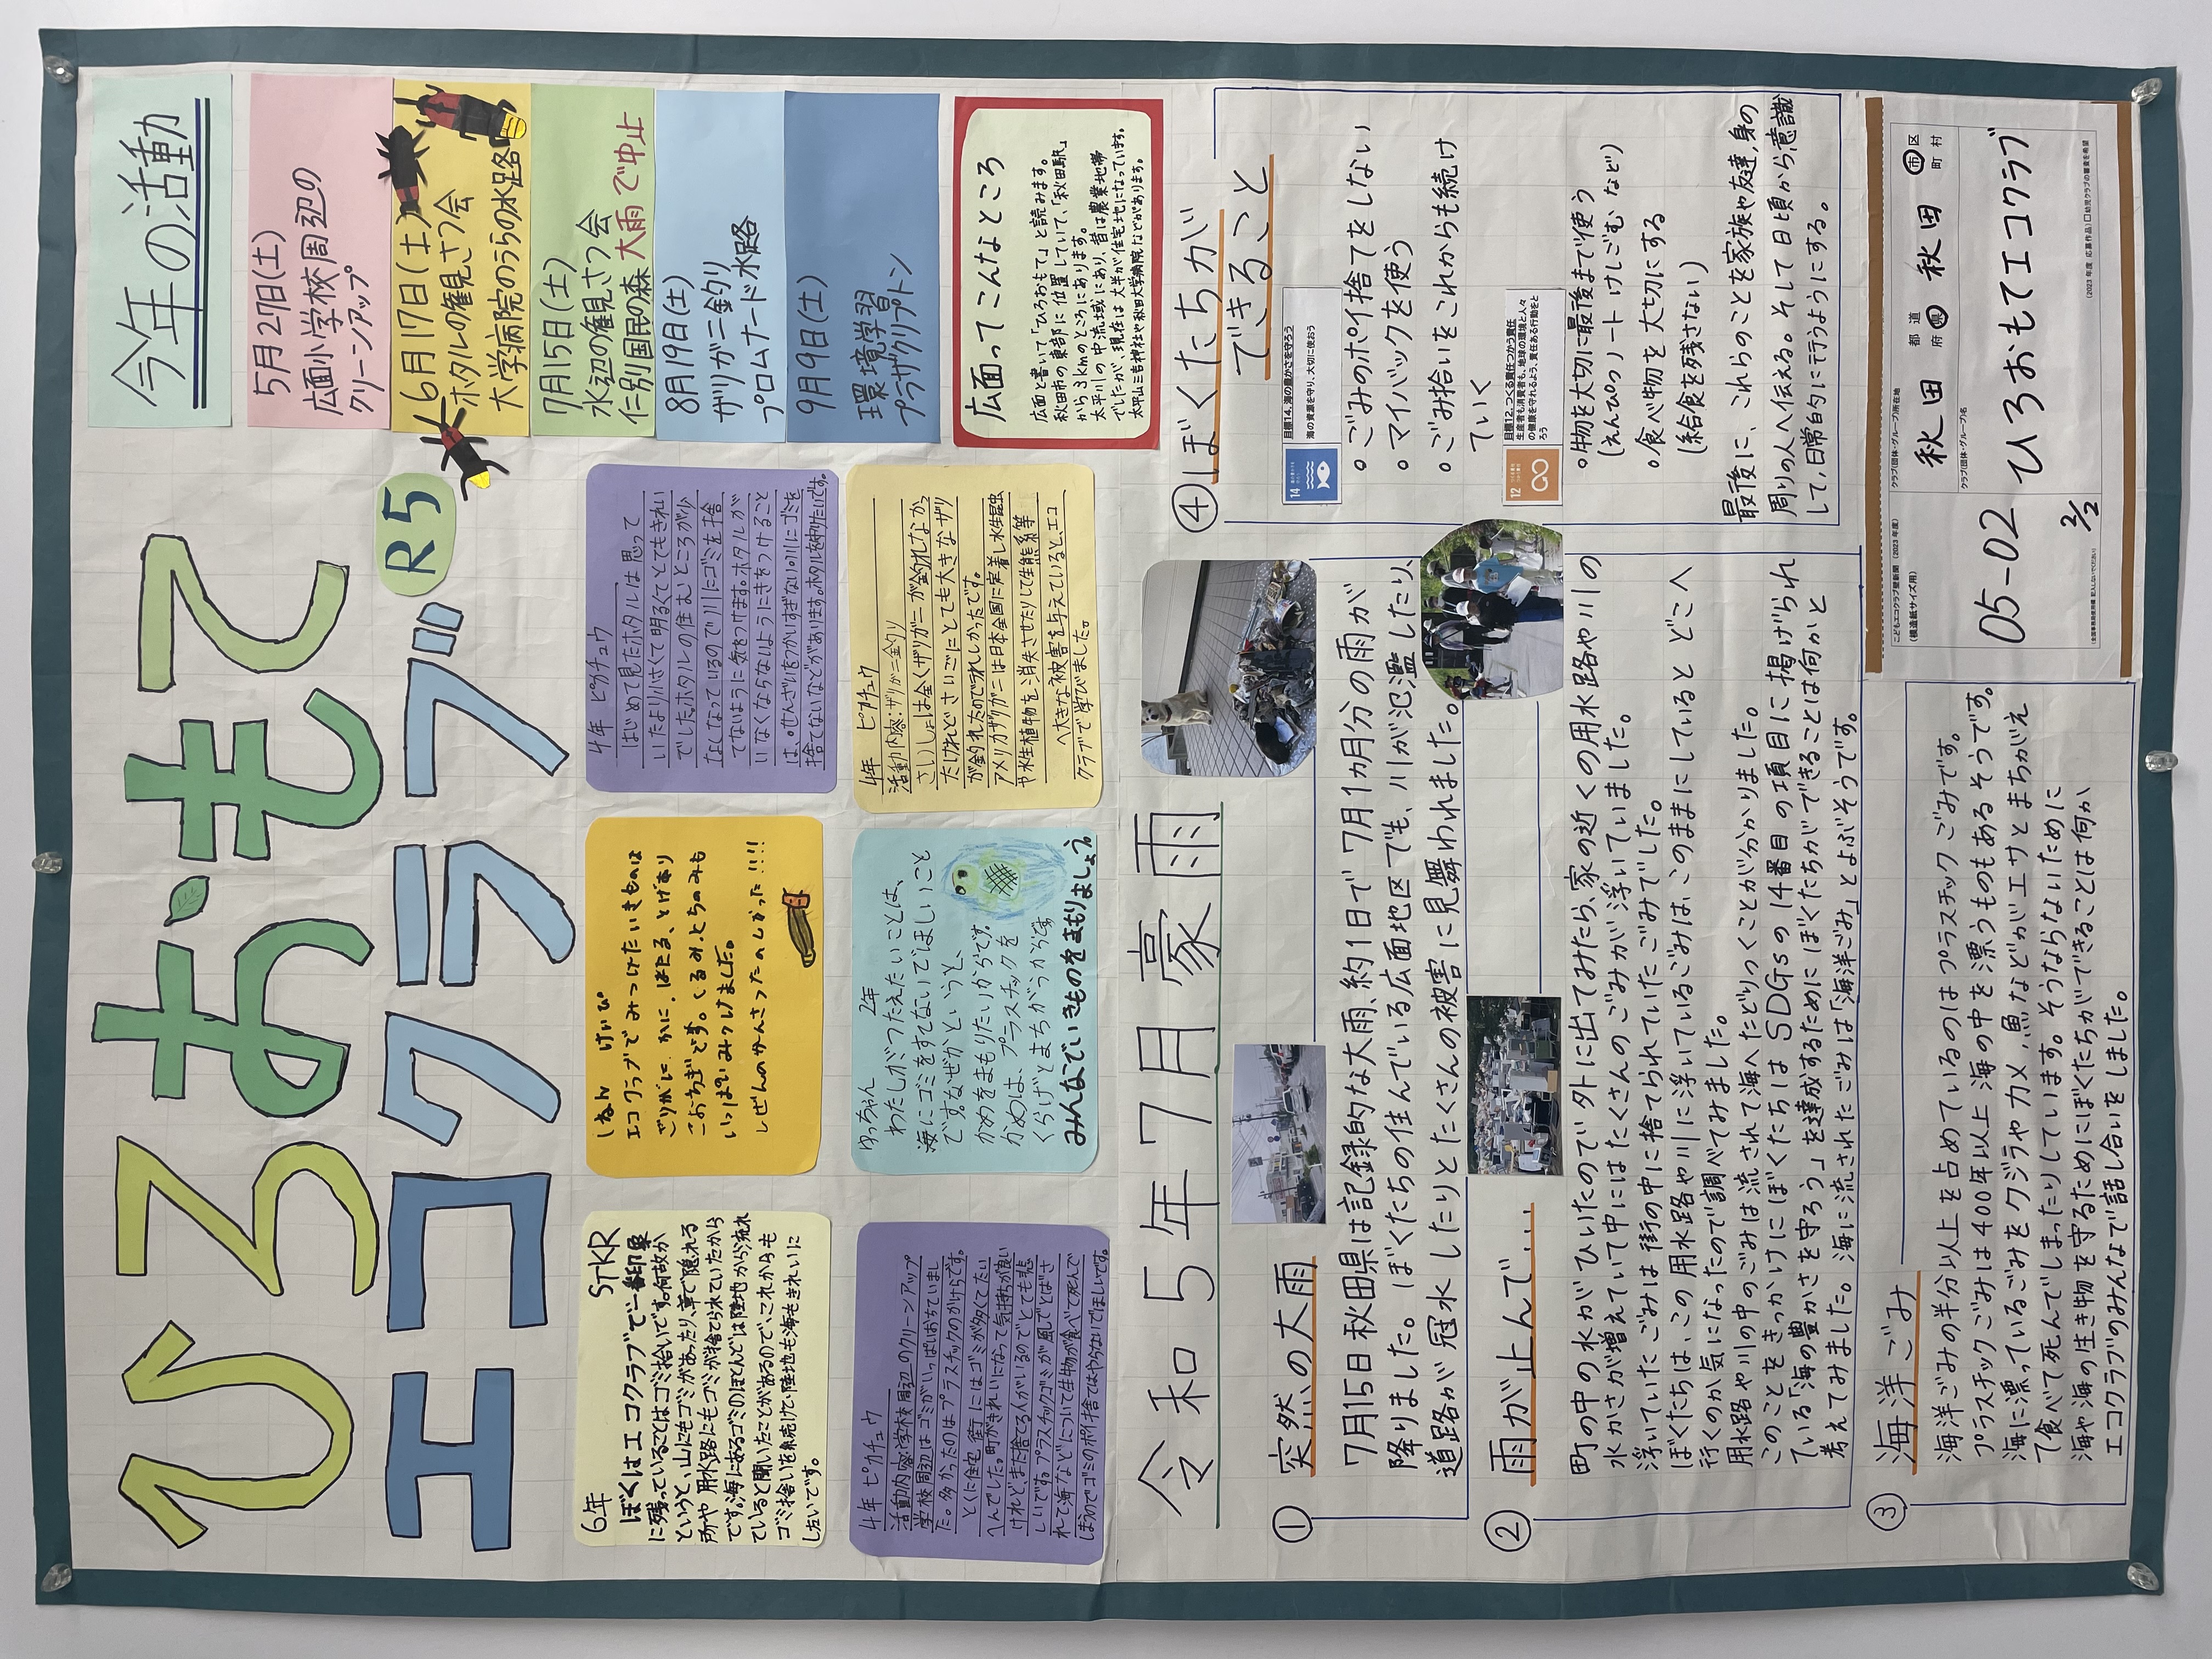 ひろおもて
エコクラブ
R5
今年の活動
5月27日(土)
広面小学校周辺の
クリーンアップ
6月17日(土)
ホタルの観見さつ会
大学病院のうらの水路
7月15日(土)
水辺の観見さつ会
仁別国民の森 大雨で中止
8月19日(土)
ザリガニ釣り
プロムナード水路
9月9日(土)
環境学習
プラザクリプトン
広面ってこんなところ
広面と書いて「ひろおもて」と読みます。
秋田市の東部に位置していて、「秋田駅」
から3kmのところにあります。
太平川の中流域にあり、昔は農業地帯
でしたが、現在は大半が住宅地になっています。
太平山三吉神社や秋田大学病院などがあります。
6年 STKR
ぼくはエコクラブで一番印象
に残っていることはゴミ拾いです。何故か
というと、山にもゴミがあったり、草で隠れる
所や用水路にもゴミが捨てられていたから
です。海にあるゴミのほとんどでは陸地から流れ
ていると聞いたことがあるので、これからも
ゴミ拾いを続けて、陸地も海もきれいに
したいです。
1ねん けいひ
エコクラブでみつけたいきものは
ざりがに、かに、ほたる、とげあり
こおろぎです。くるみ、とちのみも
いっぱいみつけました。
しぜんのかんさつたのしかった!!!!
4年 ピカチュウ
はじめて見たホタルは思って
いたより小さくて明るくてとてもきれい
でした。ホタルの住むところが少
なくなっているので川にゴミを捨
てないように気をつけます。ホタルが
いなくならないようにきをつけること
は、せんざいをつかいすぎない。川にゴミを
捨てないなどがあります。ホタルを守りたいです。
4年 ピカチュウ
活動内容:学校周辺のクリーンアップ
学校周辺はゴミがいっぱいおちていまし
た。多かったのはプラスチックのかけらです。
とくに住宅街にはゴミが多くてたい
へんでした。町がきれいになって気持ちが良い
けれど、また捨てる人がいるのでとても悲
しいです。プラスチックゴミが風でとばさ
れて海などについて生物が食べて死んで
しまうのでゴミのポイ捨てはやめてほしいです。
ゆっちゃん 2年
わたしがつたえたいことは、
海にゴミをすてないでほしいこと
です。なぜかというと、
かめをまもりたいからです。
かめは、プラスチックを
くらげとまちがうからです
みんなでいきものをまもりましょう。
4年 ピカチュウ
活動内容:ザリガニ釣り
さいしょは全くザリガニが釣れなかっ
たけれどさいごにとても大きなザリ
が釣れたのでうれしかったです。
アメリカザリガニは日本全国に定着し水生昆虫
や水生植物を消失させたりして生態系等
へ大きな被害を与えていると、エコ
クラブで学びました。
令和5年7月豪雨
① 突然の大雨
7月15日秋田県は記録的な大雨、約1日で7月1カ月分の雨が
降りました。ぼくたちの住んでいる広面地区でも、川が氾濫したり、
道路が冠水したりとたくさんの被害に見舞われました。
② 雨が止んで...
町の中の水がひいたので外に出てみたら、家の近くの用水路や川の
水かさが増えていて中にはたくさんのごみが浮いていました。
浮いていたごみは街の中に捨てられていたごみでした。
ぼくたちは、この用水路や川に浮いているごみは、このままにしているとどこへ
行くのか気になったので調べてみました。
用水路や川の中のごみは流されて海へたどりつくことが分かりました。
このことをきっかけにぼくたちはSDGsの14番目の項目に掲げられ
ている「海の豊かさを守ろう」を達成するためにぼくたちができることは何かと
考えてみました。海に流されたごみは「海洋ごみ」とよぶそうです。
③ 海洋ごみ
海洋ごみの半分以上を占めているのはプラスチックごみです。
プラスチックごみは400年以上海の中を漂うものもあるそうです。
海に漂っているごみをクジラやカメ、魚などがエサとまちがえ
て食べて死んでしまったりしています。そうならないために
海や海の生き物を守るためにぼくたちができることは何か
エコクラブのみんなで話し合いをしました。
④ ぼくたちが
できること
14
目標14.海の豊かさを守ろう
海の資源を守り、大切に使おう
。ごみのポイ捨てをしない
。マイバックを使う
。ごみ拾いをこれからも続け
ていく
12
目標12.つくる責任つかう責任
生産者も消費者も、地球の環境と人々
の健康を守れるよう、責任ある行動をと
ろう
。物を大切に最後まで使う
(えんぴつ ノート けしごむ など)
。食べ物を大切にする
(給食を残さない)
最後に、これらのことを家族や友達、身の
周りの人へ伝える。そして日頃から意識
して、日常的に行うようにする。
こどもエコクラブ壁新聞 (2023年度)
(模造紙サイズ用)
クラブ(団体・グループ)所在地
秋田 都道府県 秋田 市区町村
クラブ(団体・グループ)名
ひろおもてエコクラブ
05-02
2/2